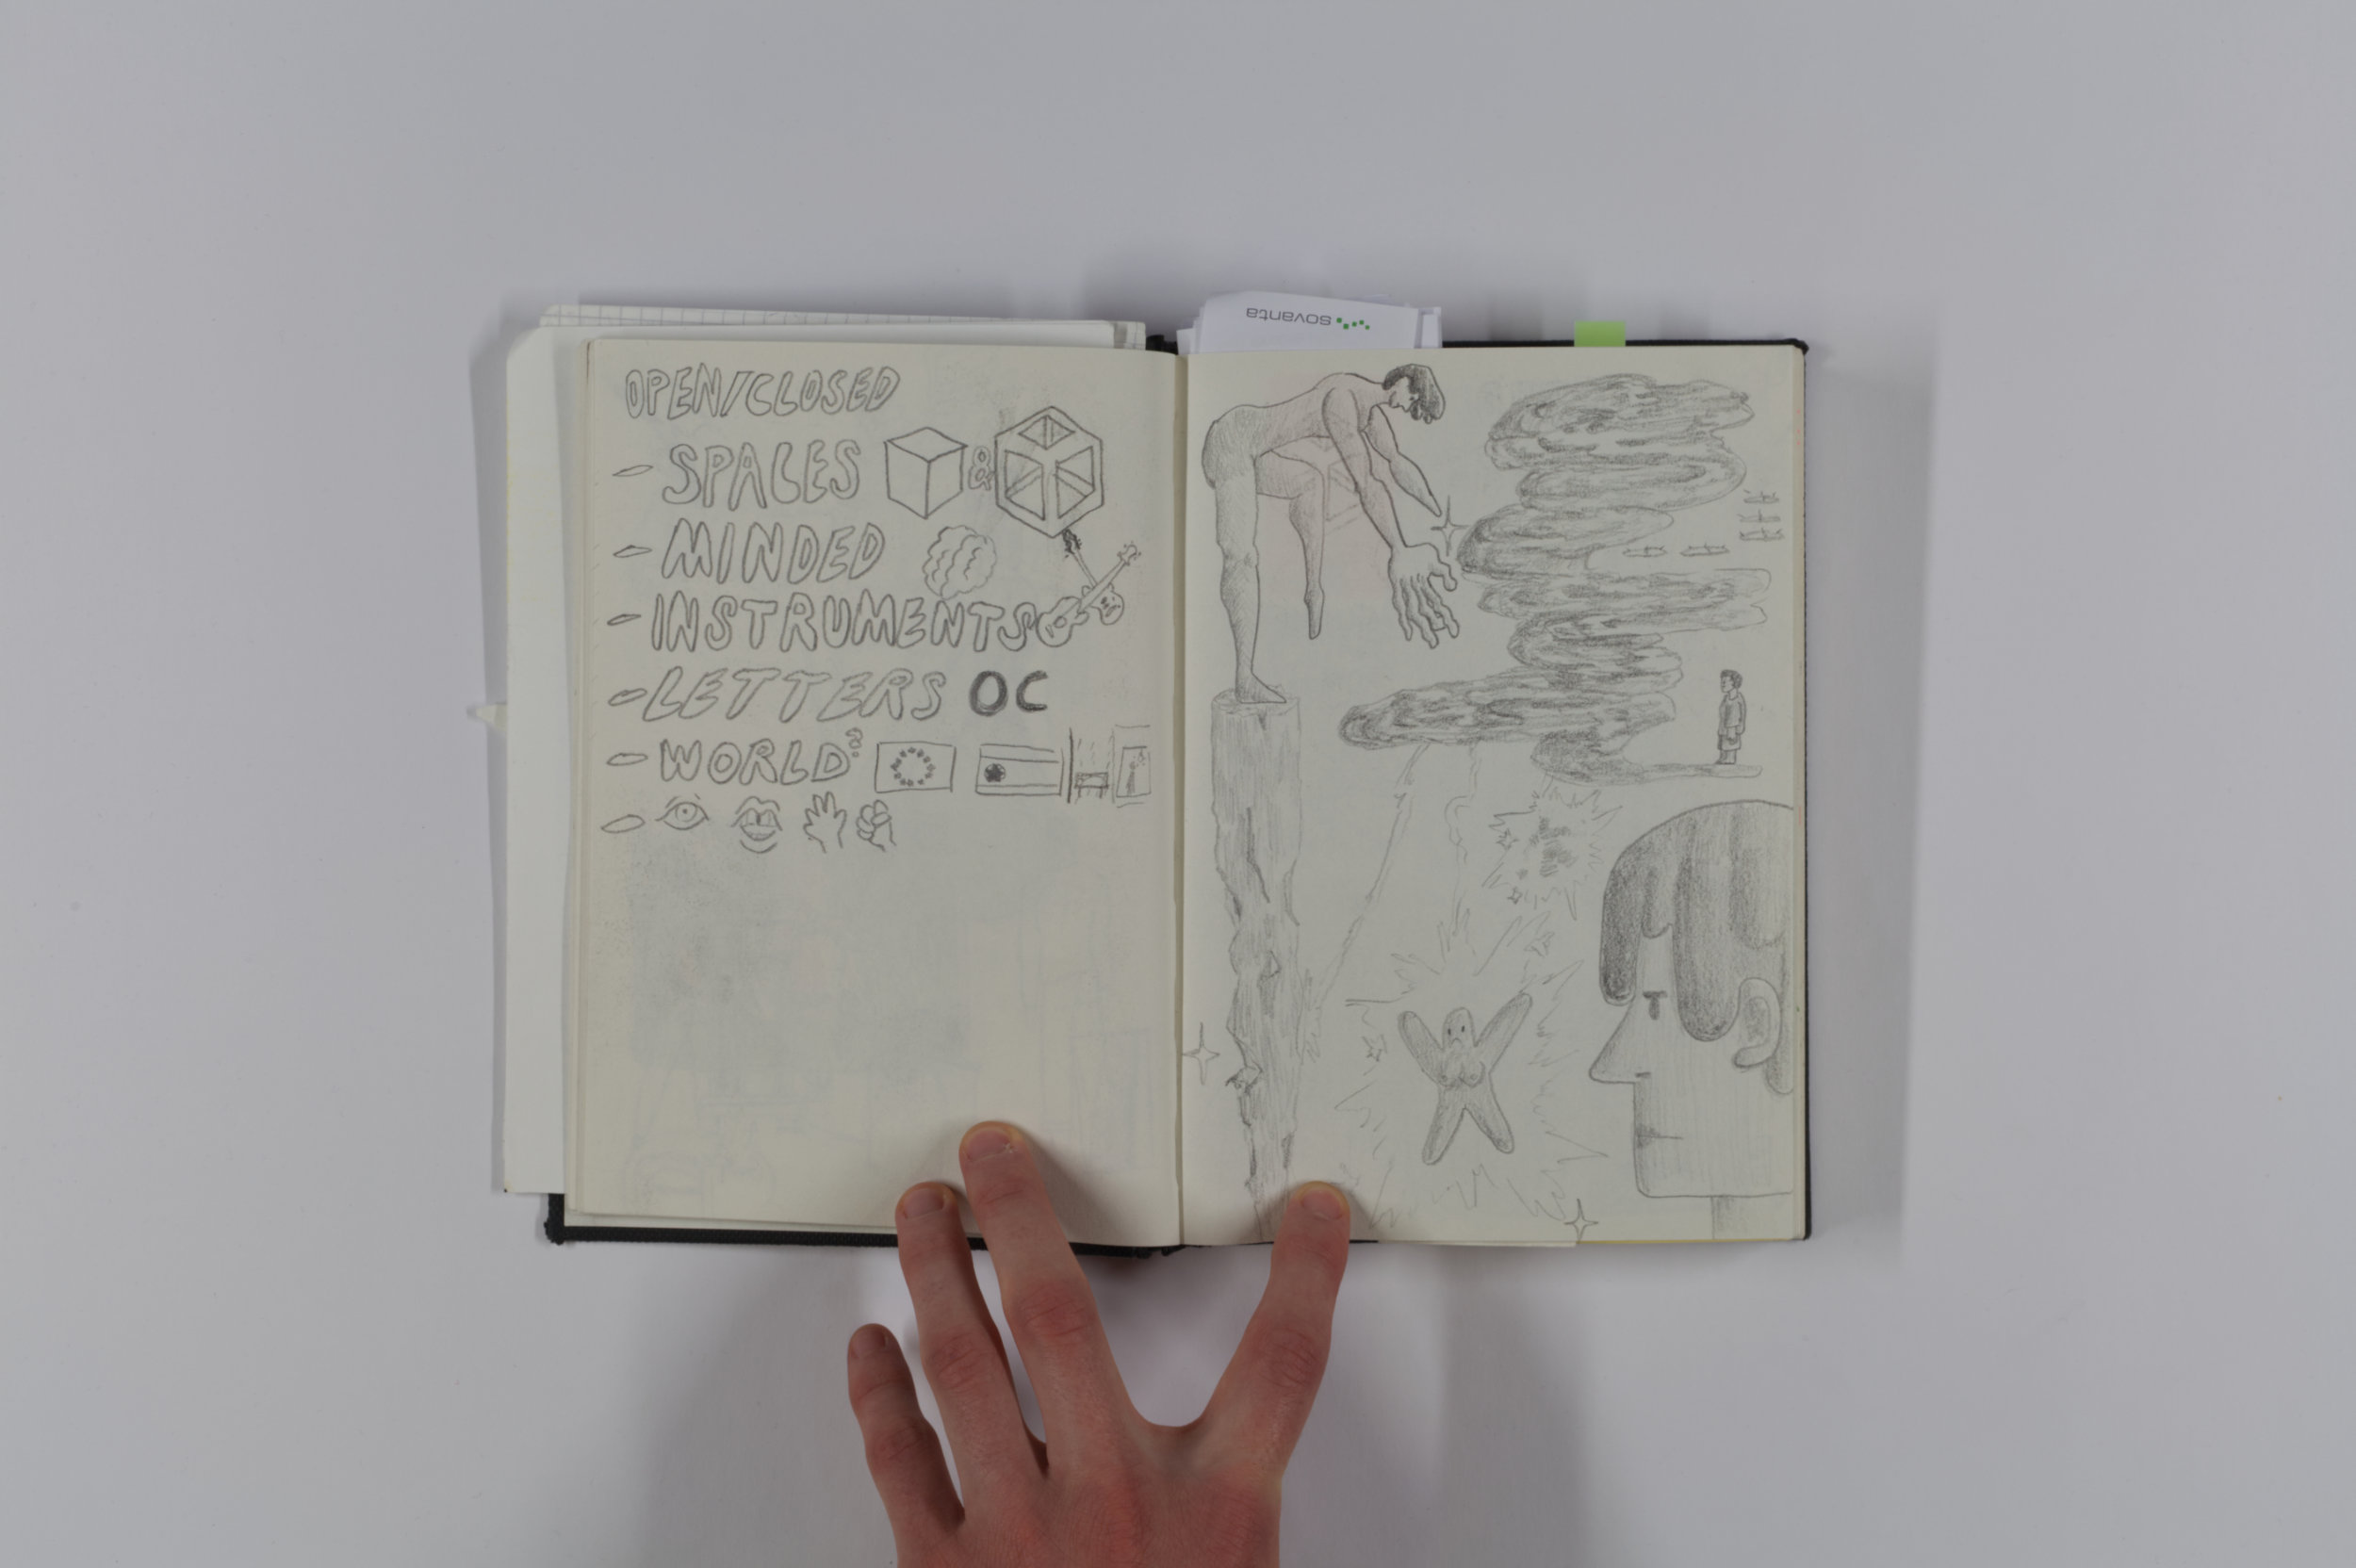 OPEN/CLOSED
- SPACES &
- MINDED
- INSTRUMENTS
- LETTERS OC
- WORLD?
-
sovanta